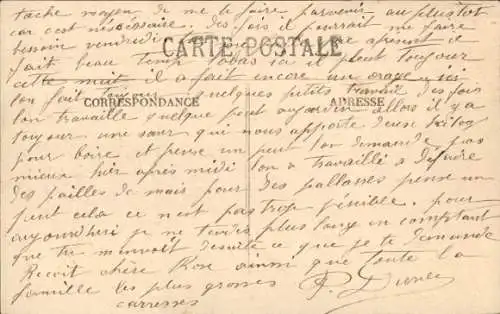 tache moyen de me le faire parvenir au plustot
car cest nésécésaire. des fois il pourrait me faire
besoin vendredi
CARTE POSTALE
fait beau temp labas ici il pleut toujour
cette nuit il a fait encore un orage ici
lon fait toujour quelques petits travail des fois
CORRESPONDANCE
ADRESSE
lon travaille quelque peut au jardin allors il y a
toujour une sœur qui nous apporte deux
pour boire et pense un peut lon demande pas
mieux hier après midi lon a travaillé a défaire
des pailles de mais pour des pallasses pense un
peut cela ce n'est pas trop pénible. pour
aujourdheri je ne tére plus long en comptant
que tu menvoit desuite ce que je te demande
Recoit chère Rose ainsi que toute la
famille les plus grosses
carresses